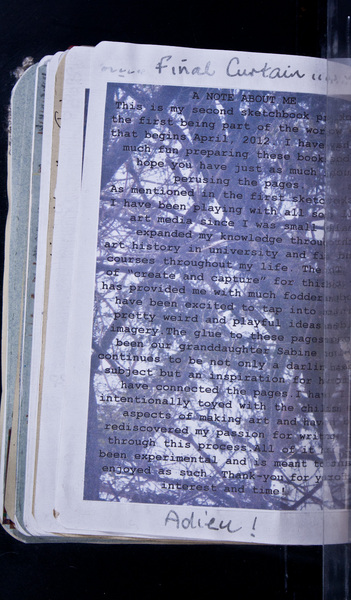 Final Curtain
A NOTE ABOUT ME
This is my second sketchbook
the first being part of the
that begins April, 2012. I have
much fun preparing these
hope you have just as much
perusing the pages.
As mentioned in the first
I have been playing with all
art media since I was small
expanded my knowledge
art history in university and
courses throughout my life. The
of "create and capture" for
has provided me with much fodder
have been excited to tap into
pretty weird and playful ideas
imagery. The glue to these pages
been our granddaughter Sabine
continues to be not only a
subject but an inspiration for
have connected the pages. I
intentionally toyed with the
aspects of making art and have
rediscovered my passion for
through this process. All of it
been experimental and is meant to
enjoyed as such. Thank-you for
interest and time!
Adieu!